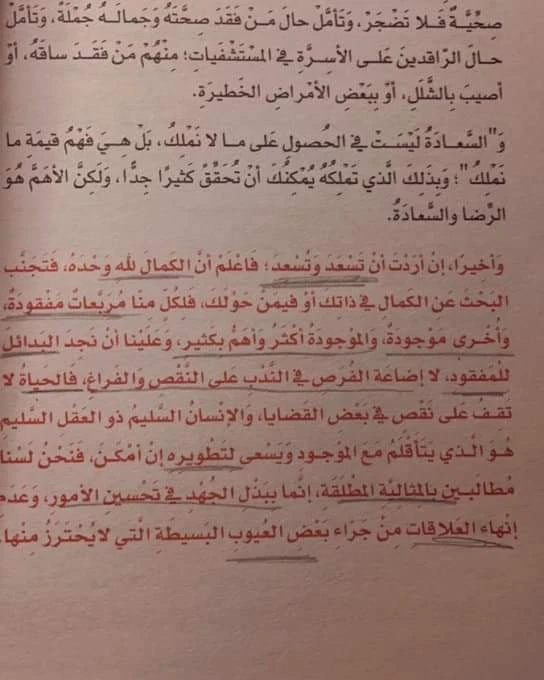 صِحِّيَّةٌ فَلا تَضْجَرْ، وَتَأَمَّلْ حالَ مَـنْ فَقَدَ صِحَّتَهُ وَجَمالَـهُ جُمْلَةً، وَتَأَمَّلْ
حالَ الرّاقدينَ عَلـى الأسِرَّةِ في المُسْتَشْفَياتِ؛ مِنْهُمْ مَن فَقَـدَ ساقَهُ، أوْ
أصيبَ بِالشَّلَلِ، أوْ بِبَعْضِ الأمْراضِ الخَطيرَة.
وَ"السَّعادَةُ لَيْسَـتْ في الحُصولِ عَلى ما لا نَملِكُ، بَلْ هِـيَ فَهْمُ قيمَةِ ما
نَمْلِكُ"؛ وَبِذَلِكَ الَّذي تَمْلِكُهُ يُمْكِنُكَ أنْ تُحَقِّقَ كَثيرًا جِدًّا، وَلَكِنَّ الأهَمَّ هُوَ
الرِّضا والسَّعادَةُ.
وَأخيرًا، إنْ أرَدْتَ أنْ تَسْعَدَ وَتُسْعِدَ؛ فَاعْلَمْ أنَّ الكَمالَ للهِ وَحْدَهُ، فَتَجَنَّبِ
البَحْثَ عَنِ الكَمالِ في ذاتِكَ أوْ فيمَن حَوْلَكَ، فَلِكُلٍّ مِنا مُرَبَّعاتٌ مَفْقودَةٌ،
وَأخْرى مَوْجودَةٌ، وَالمَوْجودَةُ أكْثَرُ وَأهَمُّ بِكَثيرٍ، وَعَلَيْنا أنْ نَجِدَ البَدائِلَ
لِلْمَفْقودِ، لا إضاعَةَ الفُرَصِ في النَّدْبِ عَلى النَّقْصِ وَالفَراغِ، فَالحَياةُ لا
تَقِفُ عَلى نَقْصٍ في بَعْضِ القَضايا، وَالإنْسانُ السَّليمُ ذو العَقْلِ السَّليمِ
هُوَ الَّـذي يَتَأقْلَمُ مَعَ المَوْجودِ وَيَسْعى لِتَطْويرِهِ إنْ أمْكَـنَ، فَنَحْنُ لَسْنا
مُطالَبـينَ بِالمِثالِيَّةِ المُطْلَقَةِ، إنَّما بِبَذْلِ الجُهْدِ في تَحْسينِ الأُمورِ، وَعَدَمِ
إنْهاءِ العَلاقاتِ مِنْ جَراءِ بَعْضِ العُيوبِ البَسيطَةِ الَّتي لا يُحْتَرَزُ مِنْها.